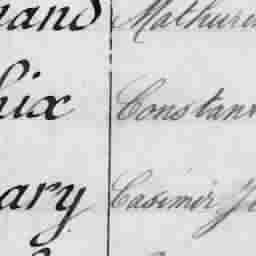 nand Mathurin
hix Constant
ary Casimir Je